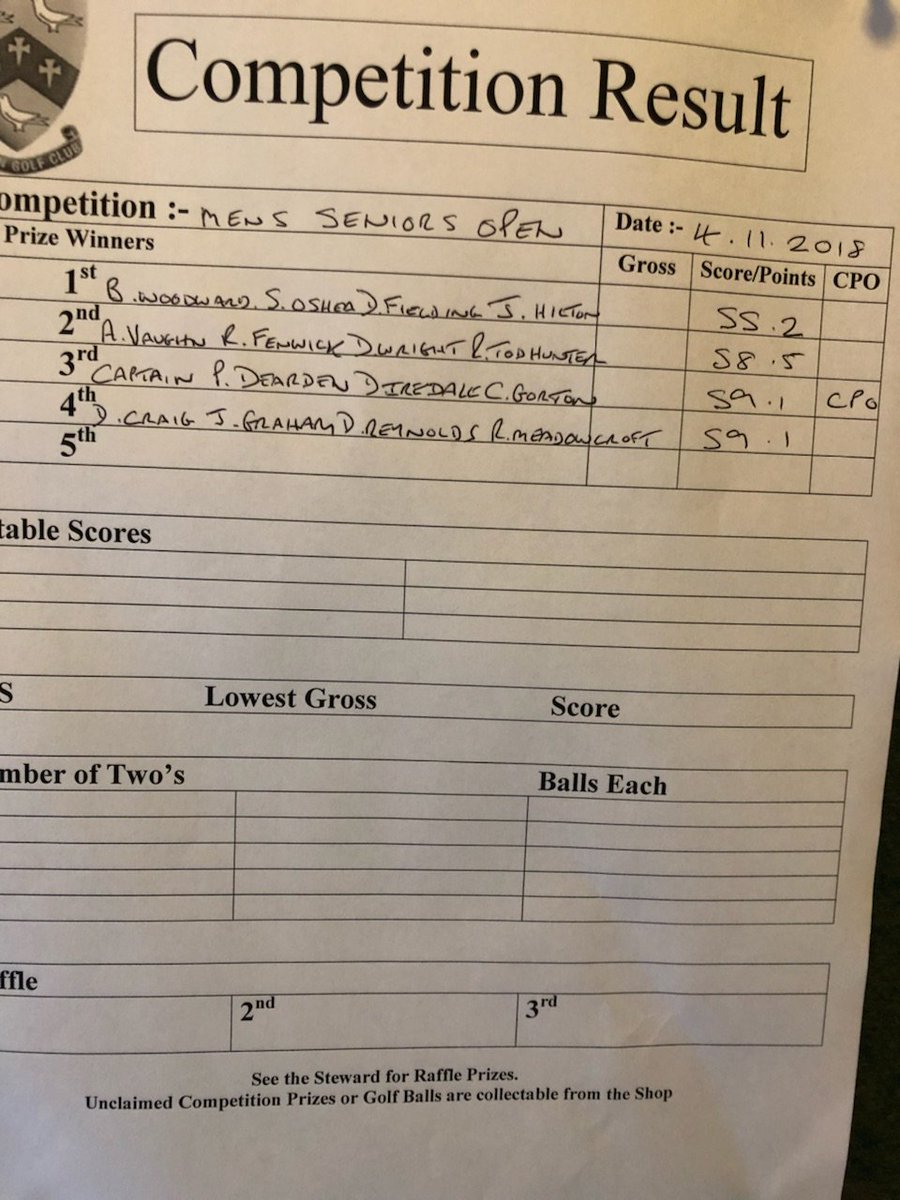 N GOLF CLUB
Competition Result
ompetition :- MENS SENIORS OPEN Date :- 4.11.2018
Prize Winners Gross Score/Points CPO
1st B.WOODWARD. S.OSHEA D.FIELDING J.HILTON 55.2
2nd A.VAUGHN R.FENWICK D.WRIGHT R.TODHUNTER 58.5
3rd CAPTAIN P.DEARDEN D IREDALE C.GORTON 59.1 CPO
4th D.CRAIG J.GRAHAM D.REYNOLDS R.MEADOWCROFT 59.1
5th
table Scores
S Lowest Gross Score
mber of Two's Balls Each
ffle
2nd 3rd
See the Steward for Raffle Prizes.
Unclaimed Competition Prizes or Golf Balls are collectable from the Shop